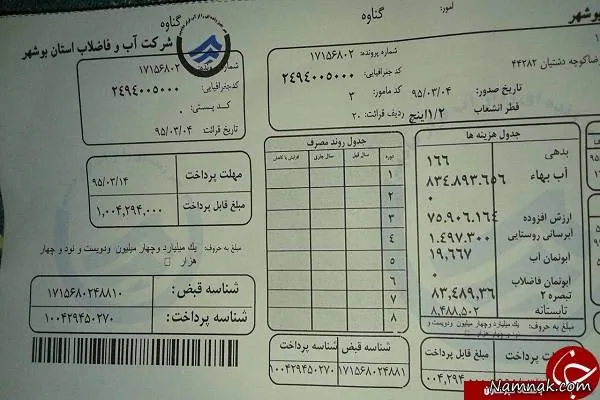 گناوه
شرکت آب و فاضلاب استان بوشهر
شماره پرونده: ۱۷۱۵۶۸۰۲
کدجغرافیایی: ۲۴۹۴۰۰۵۰۰۰
کد پستی: ۰
تاریخ قرائت: ۹۵/۰۳/۰۴
مهلت پرداخت ۹۵/۰۳/۱۴
مبلغ قابل پرداخت ۱,۰۰۴,۲۹۴,۰۰۰
مبلغ به حروف: یك میلیارد وچهار میلیون ودویست و نود و چهار هزار
شناسه قبض: ۱۷۱۵۶۸۰۲۴۸۸۱۰
شناسه پرداخت: ۱۰۰۴۲۹۴۵۰۲۷۰
امور: گناوه
بوشهر
شماره پرونده: ۱۷۱۵۶۸۰۲
کد جغرافیایی: ۲۴۹۴۰۰۵۰۰۰
کد مامور: ۳
ردیف قرائت: ۲۰
رضاکوچه دشتبان ۴۴۲۸۲
تاریخ صدور: ۹۵/۰۳/۰۴
قطر انشعاب ۱/۲اینچ
جدول روند مصرف
دوره سال قبل سال جاری افزایش یا کاهش
۱
۲
۳
۴
۵
۶
۷
۸
شناسه قبض شناسه پرداخت
۱۷۱۵۶۸۰۲۴۸۸۱ ۱۰۰۴۲۹۴۵۰۲۷۰
جدول هزینه ها
بدهی ۱۶۶
آب بهاء ۸۳۴,۸۹۳,۶۵۶
۰
ارزش افزوده ۷۵,۹۰۶,۱۶۴
آبرسانی روستایی ۱,۴۹۷,۳۰۰
آبونمان آب ۱۹,۶۶۷
آبونمان فاضلاب ۰
تبصره ۲ ۸۳,۴۸۹,۳۶
تابستانه ۸,۴۸۸,۵۰۲
مبلغ به حروف: یك میلیارد وچهار میلیون ودویست و
مبلغ قابل پرداخت
۰۰۴,۲۹۴
Namnak.com